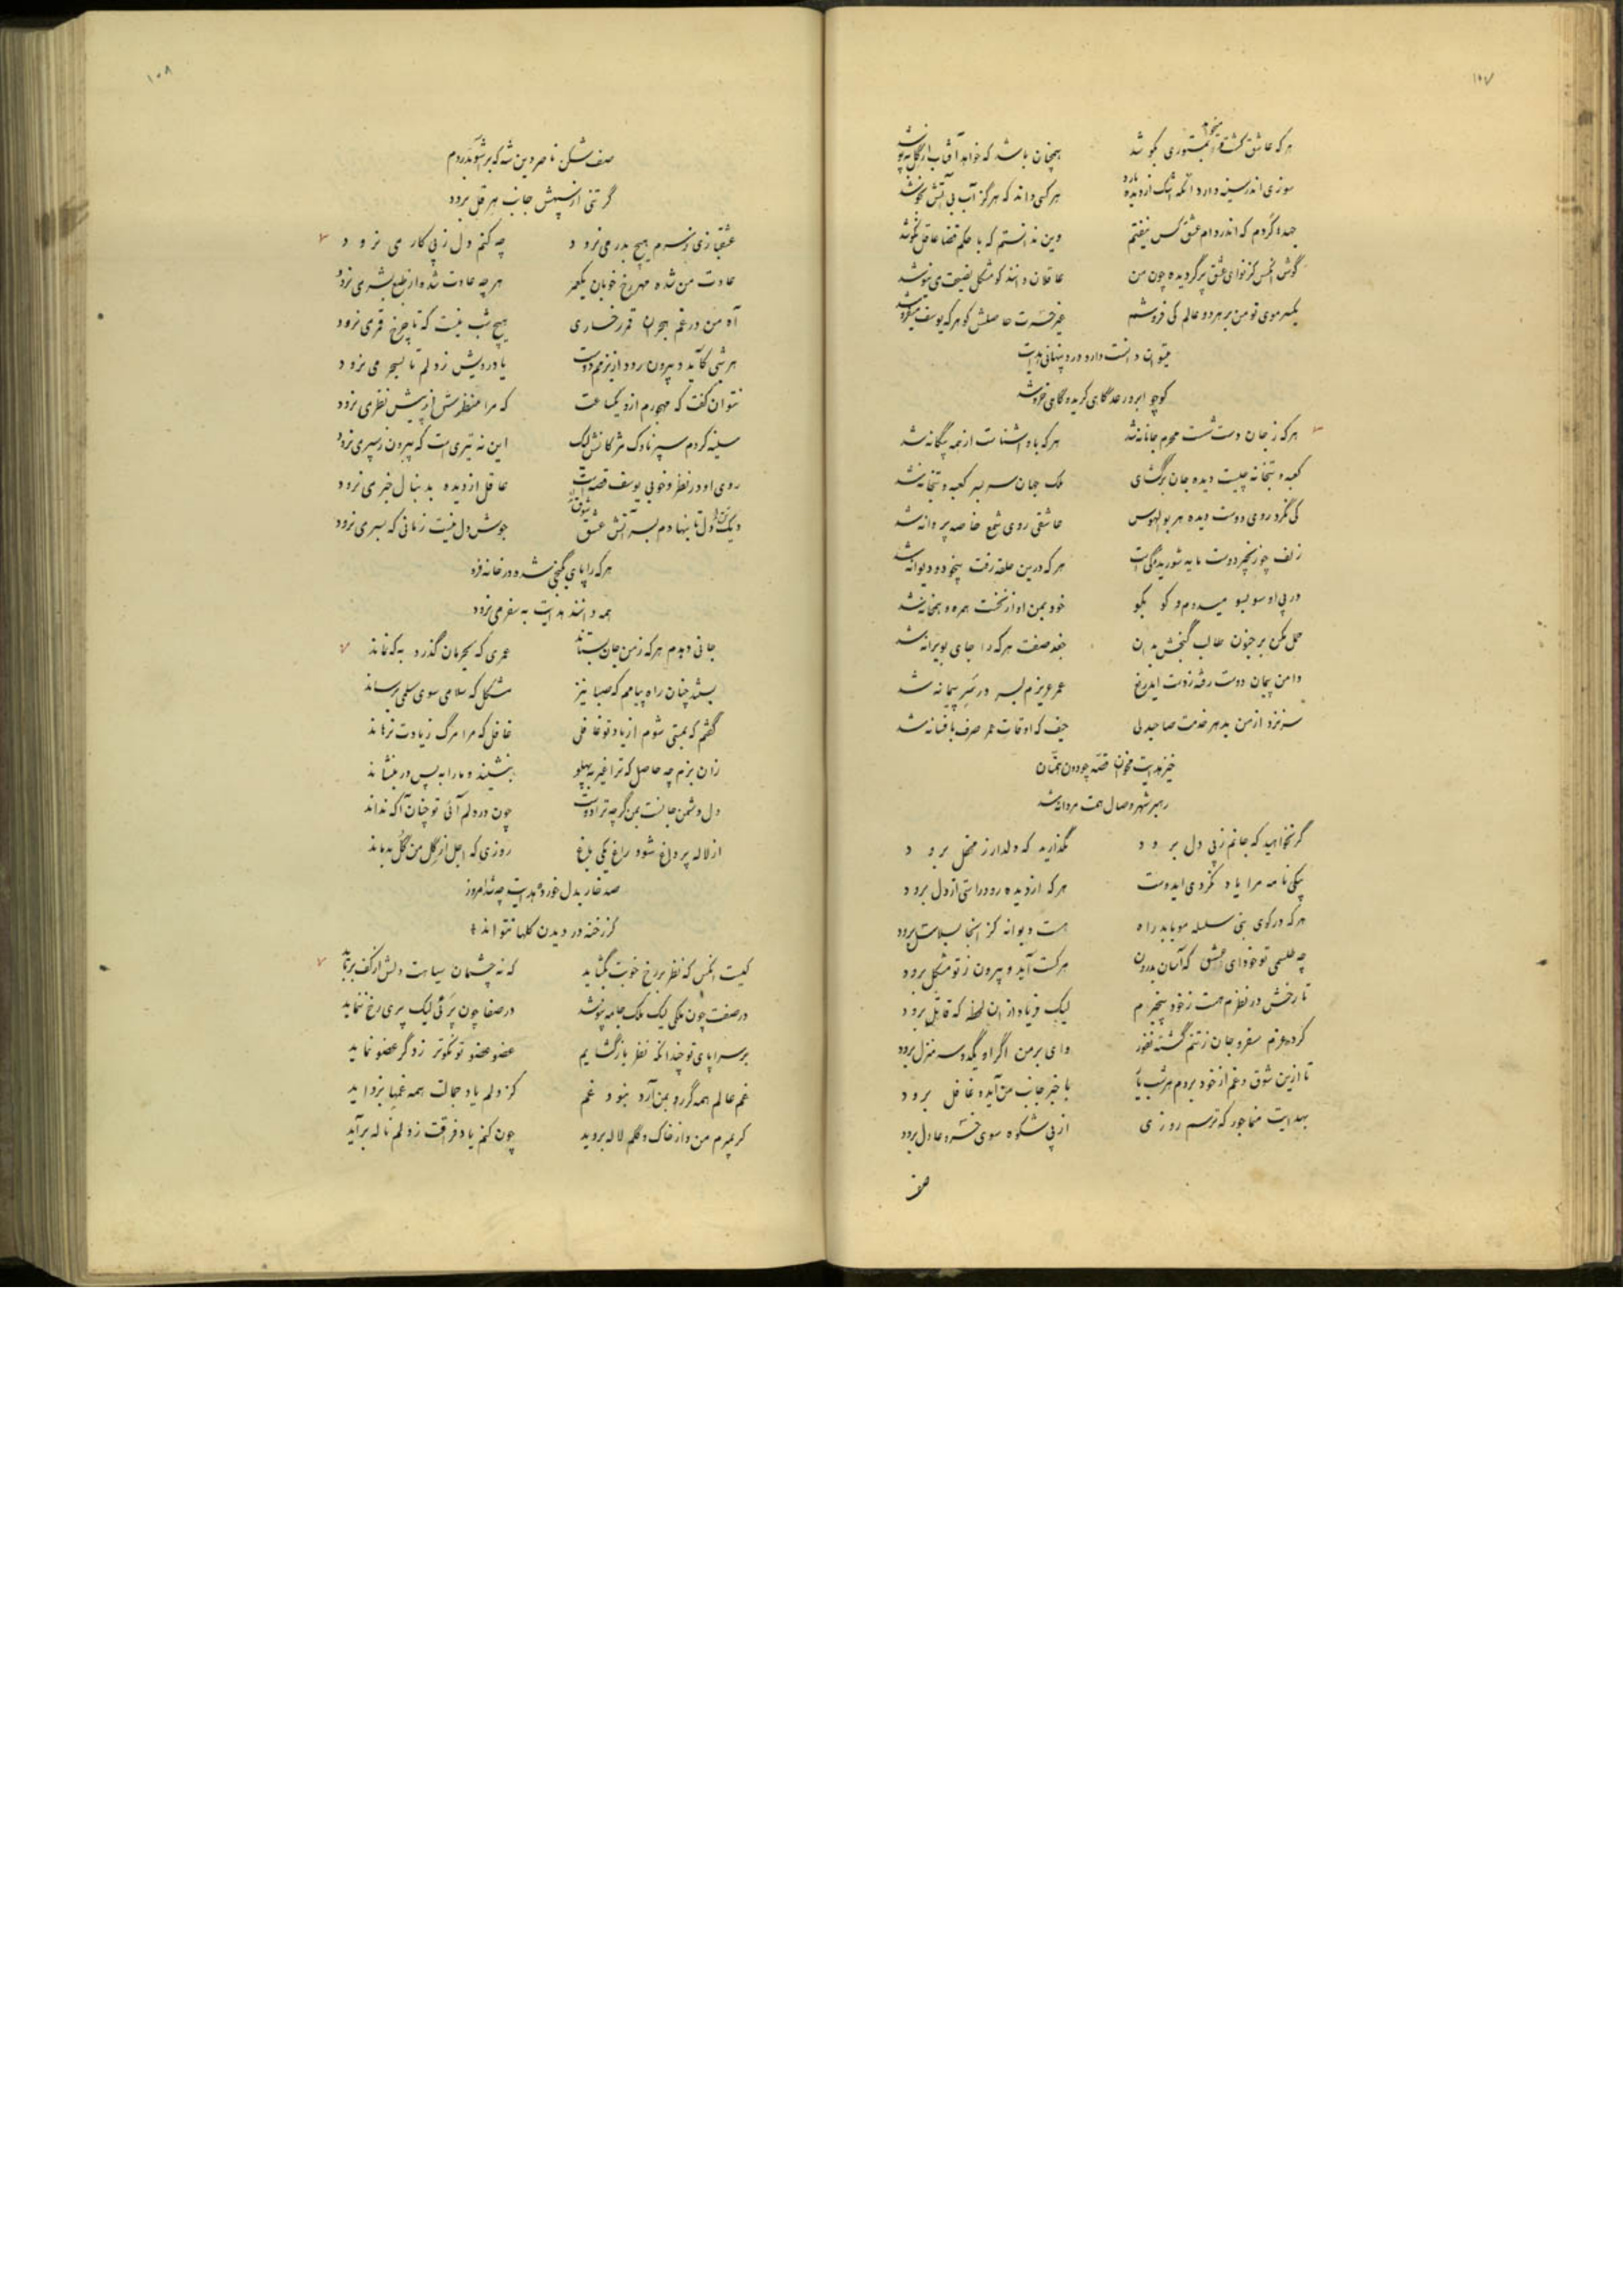 ۱۰۷
هر که عاشق گشت و مستوری بکوشد همچنان باشد که خواهد آفتاب از گل بپوشد
سوزی اندر سینه دارد آنکه اشک از دیده بارد هر کسی داند که هرگز آب بی آتش نجوشد
جهدها کردم که اندر دام عشق کس نیفتم وین ندانستم که با حکم قضا عاقل نکوشد
گوش آنکس کز نوای عشق پر گردیده چون من عاقلان دانند کو مشکل نصیحت می نیوشد
یکسر موی تو من بر هر دو عالم کی فروشم غیر حسرت حاصلش کو هر که یوسف میفروشد
میتوان دانست دارد درد پنهانی هدایت
کو چو ابر و رعد گاهی گرید و گاهی خروشد
هر که ز جان دست شست محرم جانانه شد هر که باو آشناست از همه بیگانه شد
کعبه و بتخانه چیست دیده جان برگشای ملک جهان سر بسر کعبه و بتخانه شد
کی نگرد روی دوست دیده هر بوالهوس عاشقی روی شمع خاصه پروانه شد
زلف چو زنجیر دوست مایه شوریدگی است هر که درین حلقه رفت بیخود و دیوانه شد
در پی او سو بسو میدوم و کو بکو خود بمن او از نخست همره و همخانه شد
حمل مکن بر جنون طالب گنجش بدان جغد صفت هر که را جای بویرانه شد
دامن پیمان دوست رفته ز دست ایدریغ عمر عزیزم بسر در سر پیمانه شد
سر نزد از من بدهر خدمت صاحبدلی حیف که اوقات عمر صرف بافسانه شد
خیز هدایت مخوان قصه چو دون همتان
رهبر شهر وصال همت مردانه شد
گر نخواهید که جانم ز پی دل برود نگذارید که دلدار ز محفل برود
پیکی نامه مرا یاد نکردی ایدوست هر که از دیده رود راستی از دل برود
هر که در کوی بتی سلسله مو یابد راه هست دیوانه کز اینجا بسلامت برود
چه طلسمی تو خود ای عشق که آسان بدرون هر کست آید و بیرون ز تو مشکل برود
تا رخش در نظرم هست ز خود بیخبرم لیک فریاد از آن لحظه که قاتل برود
کرده عزم سفر و جان ز تنم گشته نفور وای بر من اگر او یکدو سه منزل برود
تا ازین شوق و غم از خود بروم هر شب با خبر جانب من آید و غافل برود
بهدایت منما جور که ترسم روزی از پی شکوه سوی خسرو عادل برود
صف
۱۰۸
صف شکن ناصر دین شه که بر
گر تنی از سپهش جانب هرقل برود
عشقبازی ز سرم هیچ بدر می نرود چه کنم دل ز پی کار می نرود
عادت من شده مهر رخ خوبان یکعمر هر چه عادت شده از طبع بشر می نرود
آه من در غم هجران قمر رخساری هیچ شب نیست که تا چرخ قمری نرود
هر شبی کآید و بیرون رود از بزمم دوست یاد رویش ز دلم تا بسحر می نرود
نتوان گفت که مهجورم ازو یکساعت که مرا منظرش از پیش نظر می نرود
سینه کردم سپر ناوک مژگانش لیک این نه تیری است که بیرون ز سپر می نرود
روی او در نظر و خوبی یوسف قصه است عاقل از دیده بدنبال خبر می نرود
دیگ دل تا بنهادم بسر آتش عشق جوش دل نیست زمانی که بسر می نرود
هر که را پای بگنجی شده در خانه فرو
همه دانند هدایت به سفر می نرود
جانی دهدم هر که ز من جان بستاند عمری که بحرمان گذرد به که نماند
بستند چنان راه پیامم که صبا نیز مشکل که سلامی سوی سلمی برساند
گفتم که بمیتی شوم از یاد تو غافل غافل که مرا مرگ ز یادت نرهاند
زان بزم چه حاصل که ترا غیر بپهلو بنشیند و ما را به پس در بنشاند
دل دشمن جانست بمن گرچه ترا دوست چون در دلم آئی تو چنان آ که نداند
از لاله پر داغ شود راغ یکی باغ روزی که اجل از گل من گل بدماند
صد خار بدل خورد هدایت چه شد امروز
کز رخنه در دیدن گلها نتواند
کیست آنکس که نظر بر رخ خوبت بگشاید که نه چشمان سیاهت دلش از کف برباید
در صفت چون ملکی لیک ملک جامه نپوشد در صفا چون پری لیک پری رخ ننماید
بر سراپای تو چندانکه نظر بازگشایم عضو عضو تو نکوتر ز دگر عضو نماید
غم عالم همه گر رو بمن آرد نبود غم کز دلم یاد جمالت همه غمها بزداید
گر بمیرم من و از خاک و گلم لاله بروید چون کنم یاد فراقت ز دلم ناله برآید